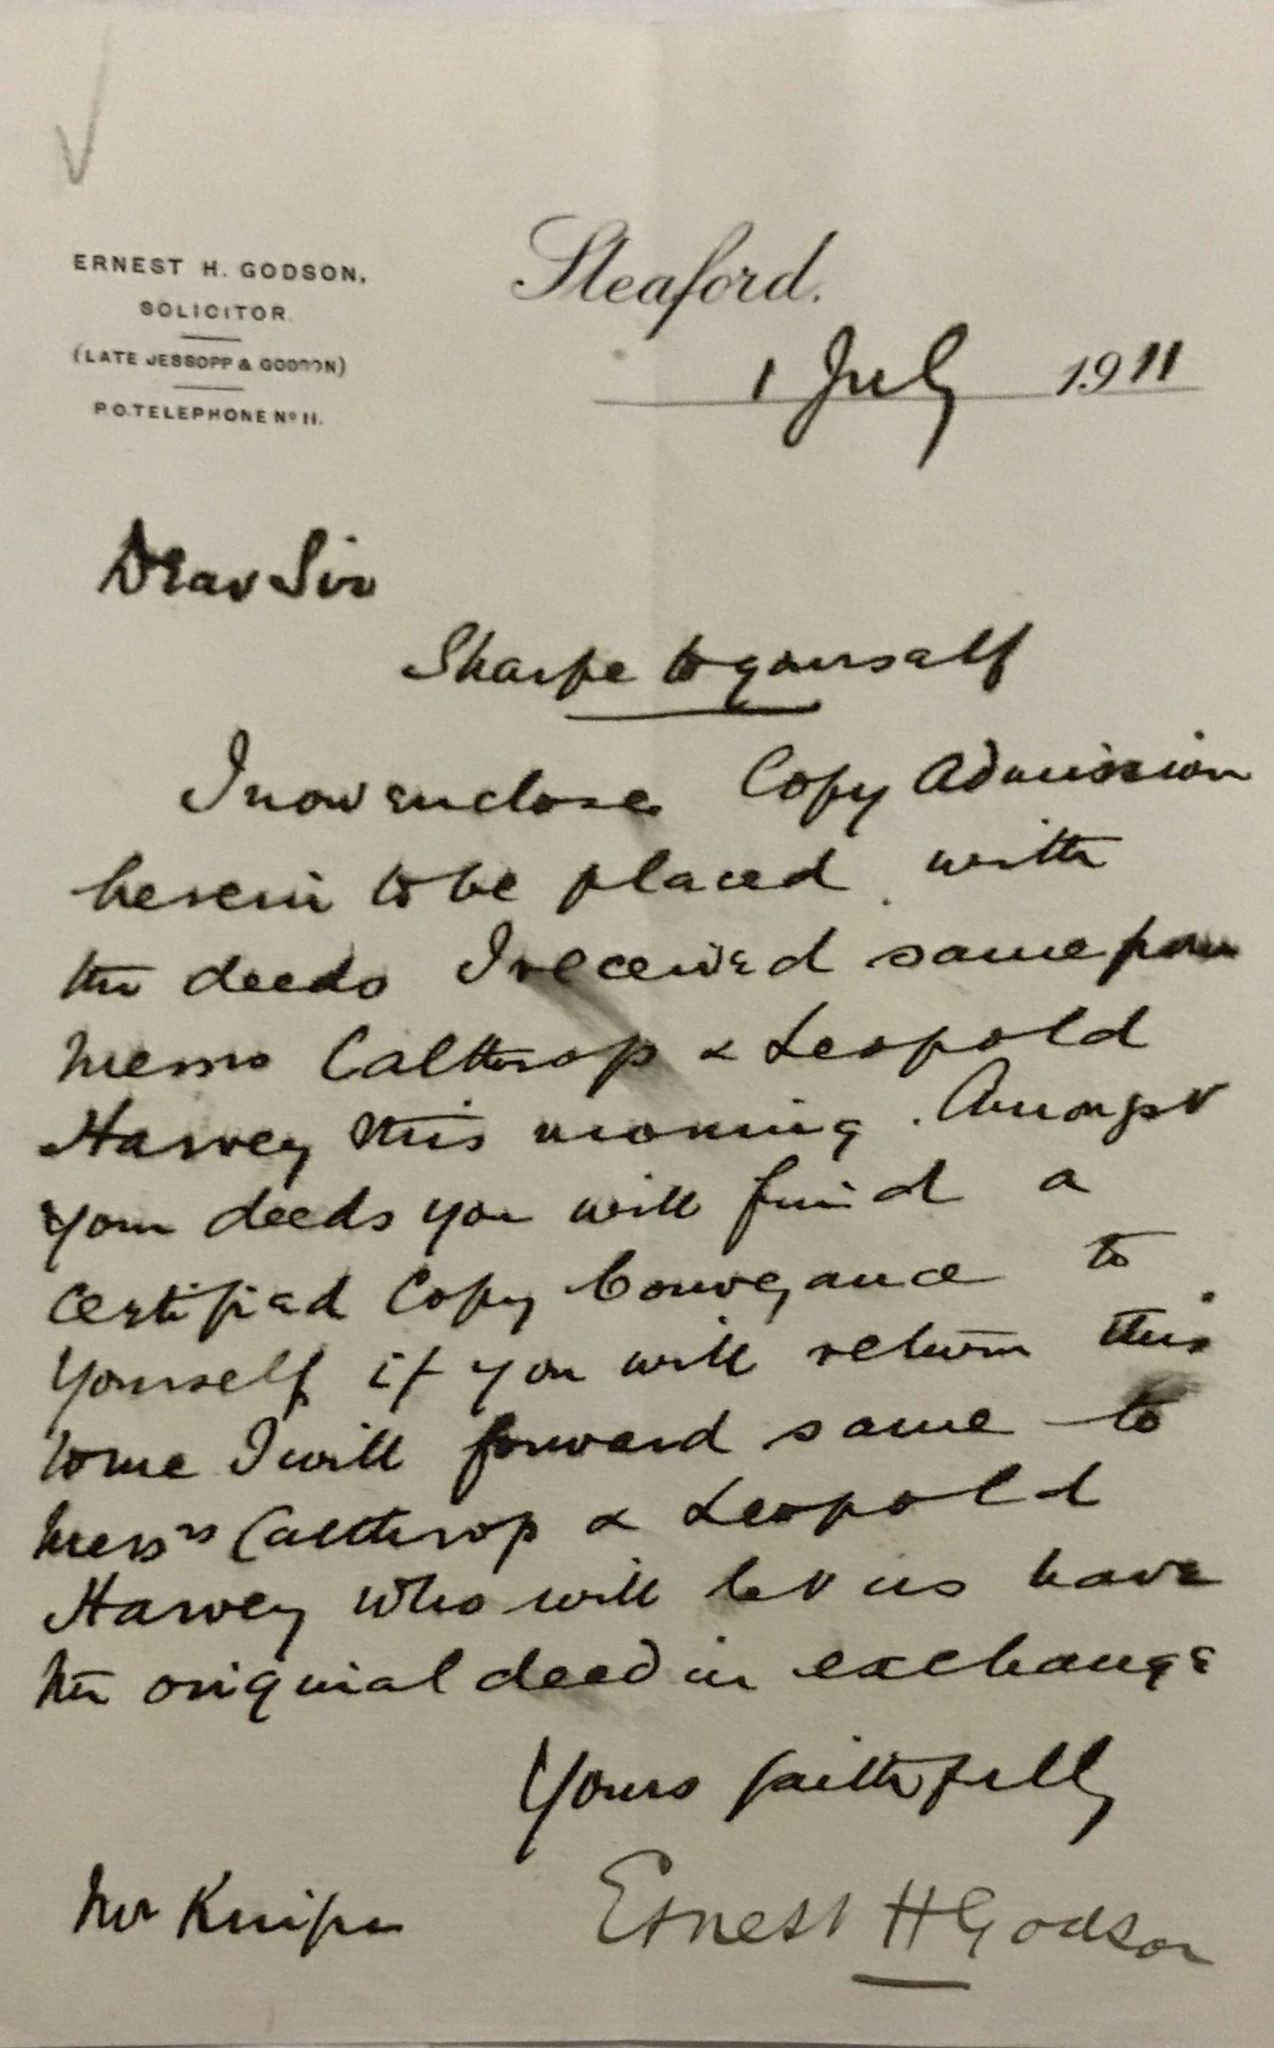 ERNEST H. GODSON,
SOLICITOR.
(LATE JESSOPP & GODSON)
P.O. TELEPHONE Nº 11.
Sleaford.
1 July 1911
Dear Sir
Sharpe to yourself
I now enclose Copy Admission
herein to be placed with
the deeds I received same from
Messrs Calthrop & Leopold
Harvey this morning. Amongst
your deeds you will find a
certified Copy Conveyance to
yourself if you will return this
to me I will forward same to
Messrs Calthrop & Leopold
Harvey who will let us have
the original deed in exchange
Yours faithfully
Ernest H Godson
Mr Knipe